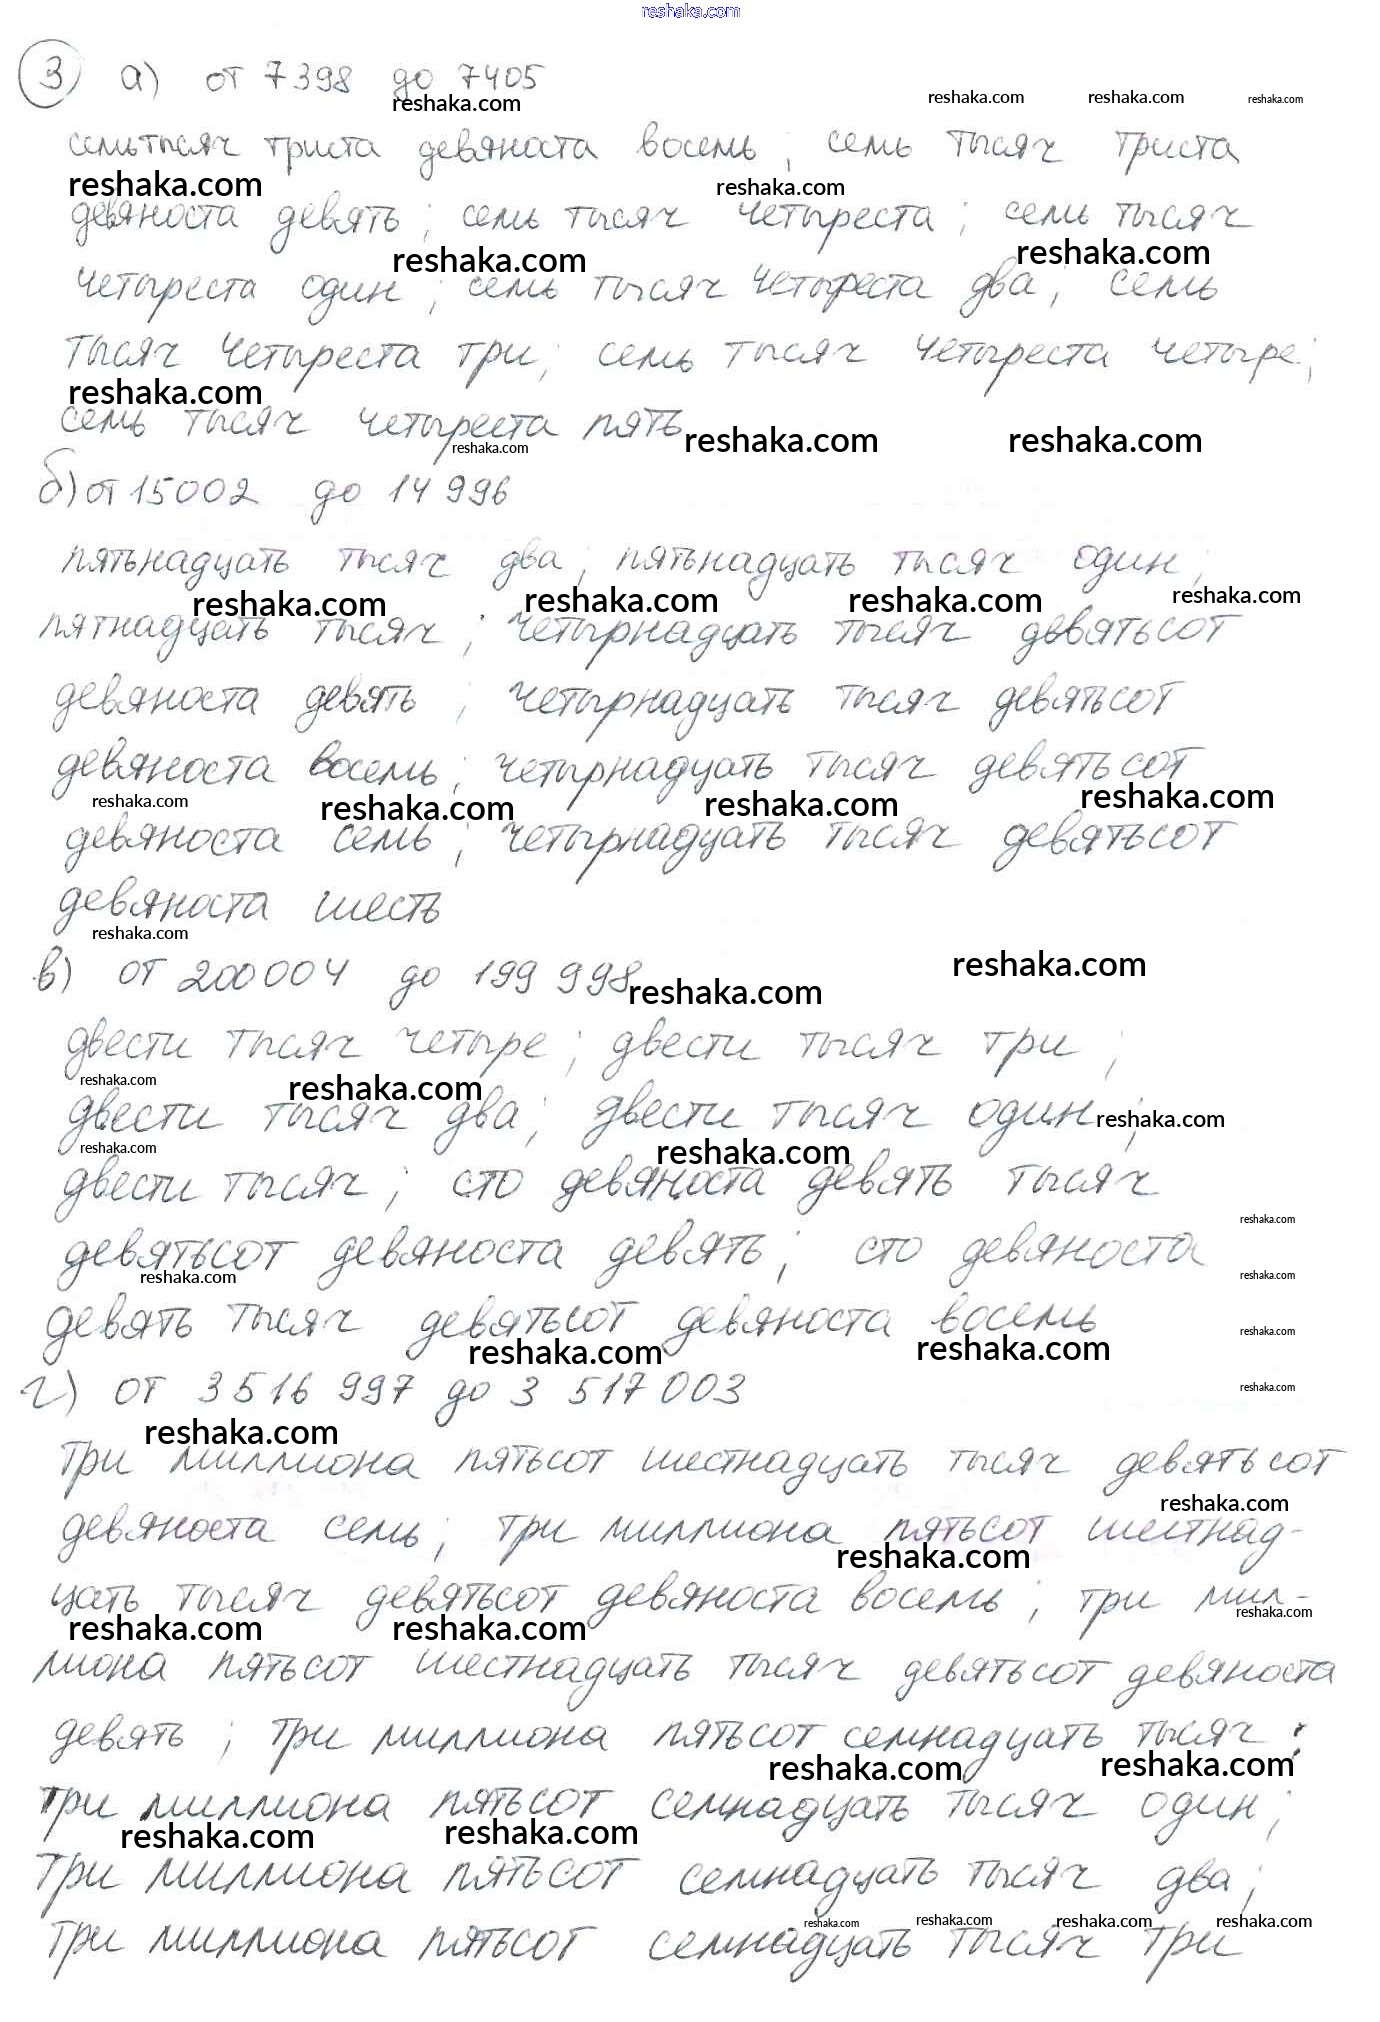 reshaka.com
3 а) от 7398 до 7405
reshaka.com reshaka.com reshaka.com reshaka.com
семь тысяч триста девяноста восемь; семь тысяч триста
reshaka.com reshaka.com
девяноста девять; семь тысяч четыреста; семь тысяч
reshaka.com reshaka.com
четыреста один; семь тысяч четыреста два; семь
тысяч четыреста три; семь тысяч четыреста четыре;
reshaka.com
семь тысяч четыреста пять
reshaka.com reshaka.com reshaka.com
б) от 15002 до 14 996
пятьнадцать тысяч два; пятьнадцать тысяч один;
reshaka.com reshaka.com reshaka.com reshaka.com
пятнадцать тысяч; четырнадцать тысяч девятьсот
девяноста девять; четырнадцать тысяч девятьсот
девяноста восемь; четырнадцать тысяч девятьсот
reshaka.com reshaka.com reshaka.com reshaka.com
девяноста семь; четырнадцать тысяч девятьсот
девяноста шесть
reshaka.com
в) от 200004 до 199 998
reshaka.com reshaka.com
двести тысяч четыре; двести тысяч три;
reshaka.com reshaka.com
двести тысяч два; двести тысяч один;
reshaka.com
reshaka.com reshaka.com
двести тысяч; сто девяноста девять тысяч
reshaka.com
девятьсот девяноста девять; сто девяноста
reshaka.com reshaka.com
девять тысяч девятьсот девяноста восемь
reshaka.com reshaka.com reshaka.com
г) от 3 516 997 до 3 517 003
reshaka.com
reshaka.com
три миллиона пятьсот шестнадцать тысяч девятьсот
reshaka.com
девяноста семь; три миллиона пятьсот шестнад-
reshaka.com
цать тысяч девятьсот девяноста восемь; три мил-
reshaka.com reshaka.com reshaka.com
лиона пятьсот шестнадцать тысяч девятьсот девяноста
девять; три миллиона пятьсот семнадцать тысяч;
reshaka.com reshaka.com
три миллиона пятьсот семнадцать тысяч один;
reshaka.com reshaka.com
три миллиона пятьсот семнадцать тысяч два;
reshaka.com reshaka.com reshaka.com reshaka.com
три миллиона пятьсот семнадцать тысяч три